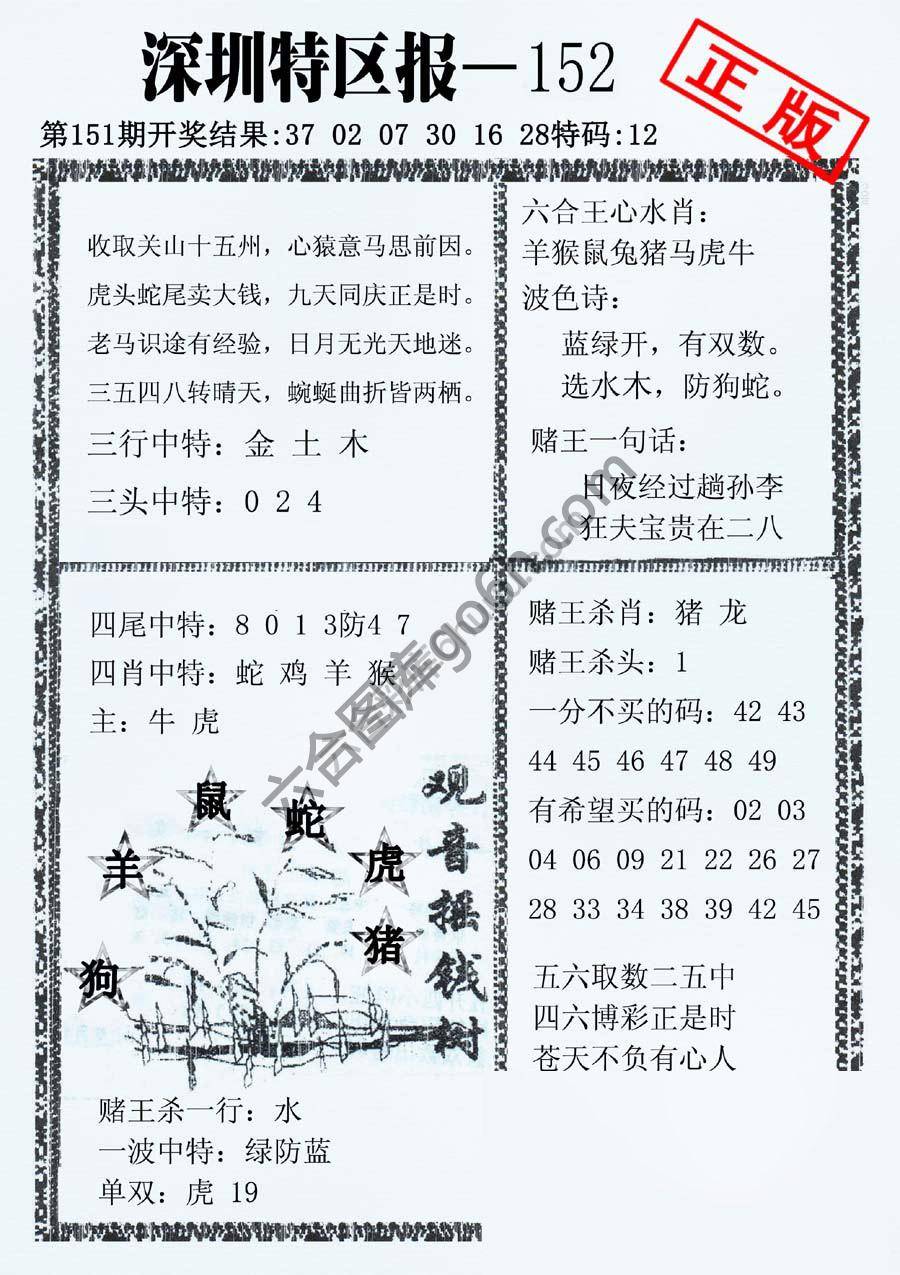 深圳特区报—152
正版
第151期开奖结果:37 02 07 30 16 28特码:12
收取关山十五州，心猿意马思前因。
虎头蛇尾卖大钱，九天同庆正是时。
老马识途有经验，日月无光天地迷。
三五四八转晴天，蜿蜒曲折皆两栖。
三行中特：金 土 木
三头中特：0 2 4
六合王心水肖：
羊猴鼠兔猪马虎牛
波色诗：
蓝绿开，有双数。
选水木，防狗蛇。
赌王一句话：
日夜经过趟孙李
狂夫宝贵在二八
四尾中特：8 0 1 3防4 7
四肖中特：蛇 鸡 羊 猴
主：牛 虎
鼠
蛇
羊
虎
猪
狗
观音摇钱树
赌王杀一行：水
一波中特：绿防蓝
单双：虎 19
赌王杀肖：猪 龙
赌王杀头：1
一分不买的码：42 43
44 45 46 47 48 49
有希望买的码：02 03
04 06 09 21 22 26 27
28 33 34 38 39 42 45
五六取数二五中
四六博彩正是时
苍天不负有心人
六合图库go6h.com